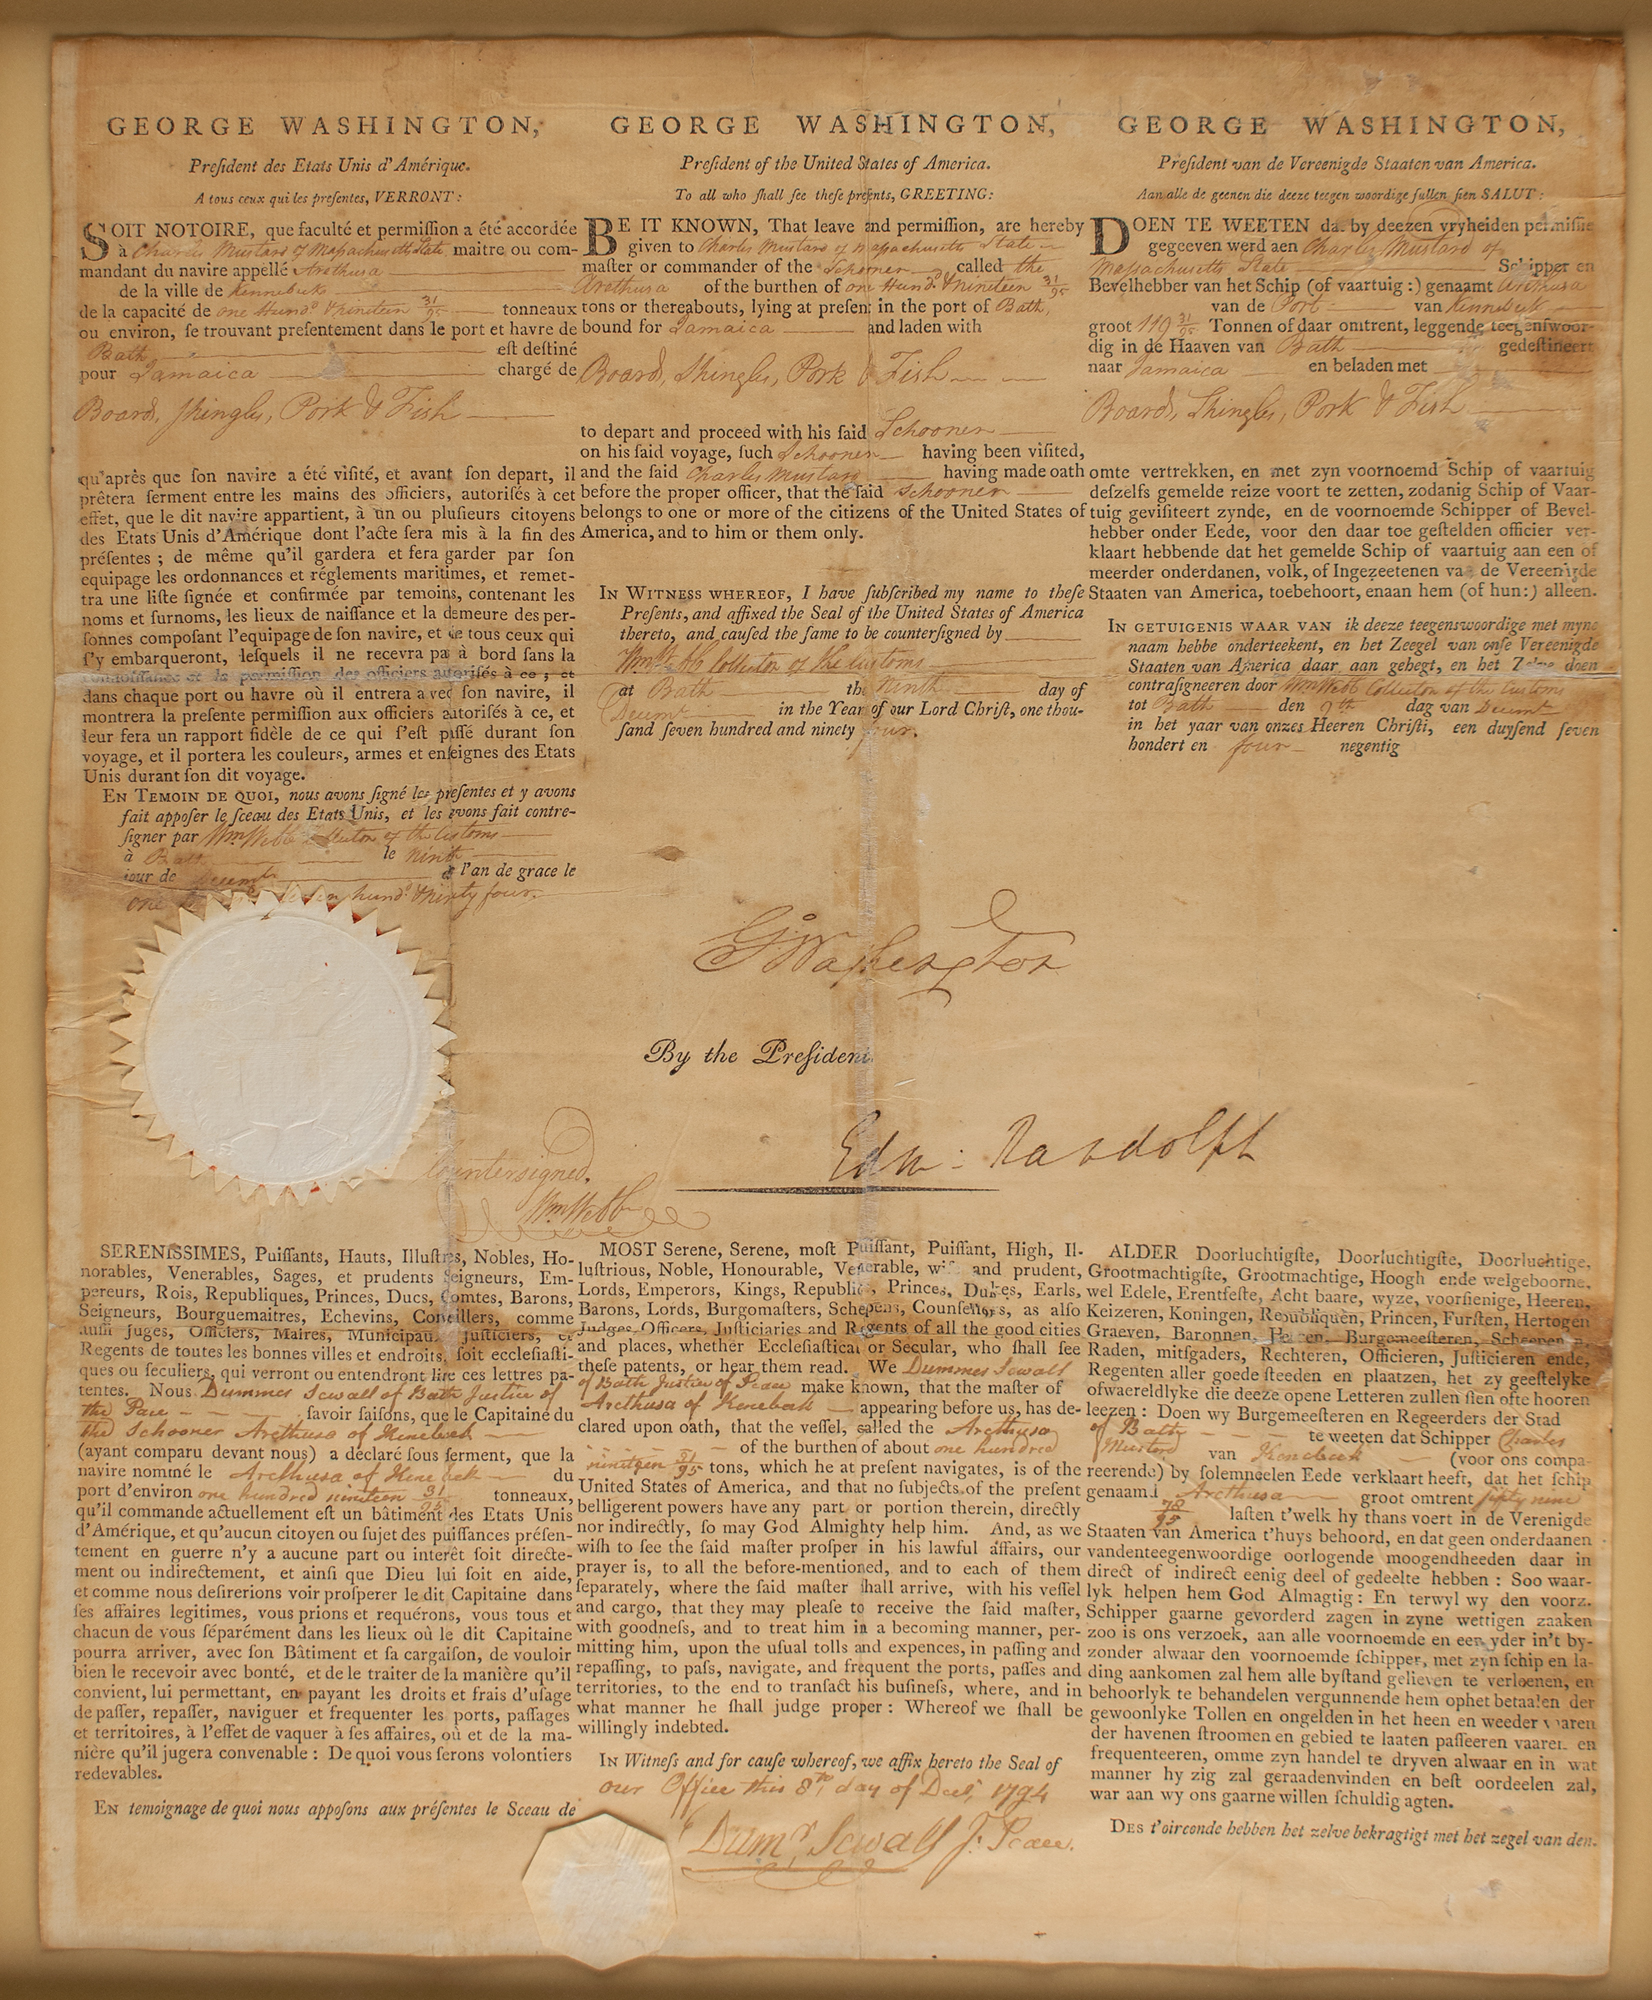 GEORGE WASHINGTON,
Preſident des Etats Unis d'Amérique.
A tous ceux qui les preſentes, VERRONT:
SOIT NOTOIRE, que faculté et permiſſion a été accordée
à Charles Mustard of Maſsachusetts State maitre ou com-
mandant du navire appellé Arethusa
de la ville de Kennebeck
de la capacité de one Hund.d & nineteen 31/95 tonneaux
ou environ, ſe trouvant preſentement dans le port et havre de
Bath eſt deſtiné
pour Jamaica chargé de
Board, Shingles, Pork & Fish
qu'après que ſon navire a été viſité, et avant ſon depart, il
prêtera ſerment entre les mains des officiers, autoriſés à cet
effet, que le dit navire appartient, à un ou pluſieurs citoyens
des Etats Unis d'Amérique dont l'acte ſera mis à la fin des
préſentes; de même qu'il gardera et fera garder par ſon
equipage les ordonnances et réglements maritimes, et remet-
tra une liſte ſignée et confirmée par temoins, contenant les
noms et ſurnoms, les lieux de naiſſance et la demeure des per-
ſonnes compoſant l'equipage de ſon navire, et de tous ceux qui
s'y embarqueront, leſquels il ne recevra pas à bord ſans la
connoiſſance et la permiſſion des officiers autoriſés à ce; et
dans chaque port ou havre où il entrera avec ſon navire, il
montrera la preſente permiſſion aux officiers autoriſés à ce, et
leur fera un rapport fidèle de ce qui s'eſt paſſé durant ſon
voyage, et il portera les couleurs, armes et enſeignes des Etats
Unis durant ſon dit voyage.
EN TEMOIN DE QUOI, nous avons ſigné les preſentes et y avons
fait appoſer le ſceau des Etats Unis, et les avons fait contre-
ſigner par Wm Webb Collector of the Customs
à Bath le ninth
jour de Decemr de l'an de grace le
one seven hund.d & ninty four.
GEORGE WASHINGTON,
Preſident of the United States of America.
To all who ſhall ſee theſe preſents, GREETING:
BE IT KNOWN, That leave and permiſſion, are hereby
given to Charles Mustard of Maſsachusetts State
maſter or commander of the Schooner called the
Arethusa of the burthen of one Hund.d & nineteen 31/95
tons or thereabouts, lying at preſent in the port of Bath,
bound for Jamaica and laden with
Board, Shingles, Pork & Fish
to depart and proceed with his ſaid Schooner
on his ſaid voyage, ſuch Schooner having been viſited,
and the ſaid Charles Mustard having made oath
before the proper officer, that the ſaid Schooner
belongs to one or more of the citizens of the United States of
America, and to him or them only.
IN WITNESS WHEREOF, I have ſubſcribed my name to theſe
Preſents, and affixed the Seal of the United States of America
thereto, and cauſed the ſame to be counterſigned by
Wm Webb Collector of the Customs
at Bath the Ninth day of
Decemr in the Year of our Lord Chriſt, one thou-
ſand ſeven hundred and ninety four.
GEORGE WASHINGTON,
Preſident van de Vereenigde Staaten van America.
Aan alle de geenen die deeze teegen woordige ſullen ſien SALUT:
DOEN TE WEETEN dat by deezen vryheiden permiſſie
gegeeven werd aen Charles Mustard of
Maſsachusetts State Schipper en
Bevelhebber van het Schip (of vaartuig:) genaamt Arethusa
van de Port van Kennebeck
groot 119 31/95 Tonnen of daar omtrent, leggende teegenſwoor-
dig in de Haaven van Bath gedeſtineert
naar Jamaica en beladen met
Board, Shingles, Pork & Fish
omte vertrekken, en met zyn voornoemd Schip of vaartuig
deſzelfs gemelde reize voort te zetten, zodanig Schip of Vaar-
tuig geviſiteert zynde, en de voornoemde Schipper of Bevel-
hebber onder Eede, voor den daar toe geſtelden officier ver-
klaart hebbende dat het gemelde Schip of vaartuig aan een of
meerder onderdanen, volk, of Ingezeetenen van de Vereenigde
Staaten van America, toebehoort, enaan hem (of hun:) alleen.
IN GETUIGENIS WAAR VAN ik deeze teegenswoordige met myne
naam hebbe onderteekent, en het Zeegel van onſe Vereenigde
Staaten van America daar aan gehegt, en het Zelve doen
contraſigneeren door Wm Webb Collector of the Customs
tot Bath den 9th dag van Decemr
in het yaar van onzes Heeren Chriſti, een duyſend ſeven
hondert en four negentig
G:Washington
By the Preſident
Edm: Randolph
Countersigned,
Wm Webb
SERENISSIMES, Puiſſants, Hauts, Illuſtres, Nobles, Ho-
norables, Venerables, Sages, et prudents Seigneurs, Em-
pereurs, Rois, Republiques, Princes, Ducs, Comtes, Barons,
Seigneurs, Bourguemaitres, Echevins, Conſeillers, comme
auſſi Juges, Officiers, Maires, Municipaux, Juſticiers, et
Regents de toutes les bonnes villes et endroits, ſoit eccleſiaſti-
ques ou ſeculiers, qui verront ou entendront lire ces lettres pa-
tentes. Nous Dummer Sewall of Bath Justice of
the Pace ſavoir faiſons, que le Capitaine du
the Schooner Arethusa of Kinebeck
(ayant comparu devant nous) a déclaré ſous ſerment, que la
navire nommé le Arethusa of Kenebeck du
port d'environ one hundred nineteen 31/95 tonneaux,
qu'il commande actuellement eſt un bâtiment des Etats Unis
d'Amérique, et qu'aucun citoyen ou ſujet des puiſſances préſen-
tement en guerre n'y a aucune part ou interêt ſoit directe-
ment ou indirectement, et ainſi que Dieu lui ſoit en aide,
et comme nous deſirerions voir proſperer le dit Capitaine dans
ſes affaires legitimes, vous prions et requérons, vous tous et
chacun de vous ſéparément dans les lieux où le dit Capitaine
pourra arriver, avec ſon Bâtiment et ſa cargaiſon, de vouloir
bien le recevoir avec bonté, et de le traiter de la manière qu'il
convient, lui permettant, en payant les droits et frais d'uſage
de paſſer, repaſſer, naviguer et frequenter les ports, paſſages
et territoires, à l'effet de vaquer à ſes affaires, où et de la ma-
nière qu'il jugera convenable: De quoi vous ſerons volontiers
redevables.
EN temoignage de quoi nous appoſons aux préſentes le Sceau de
MOST Serene, Serene, moſt Puiſſant, Puiſſant, High, Il-
luſtrious, Noble, Honourable, Venerable, wiſe and prudent,
Lords, Emperors, Kings, Republics, Princes, Dukes, Earls,
Barons, Lords, Burgomaſters, Schepens, Counſellors, as alſo
Judges, Officers, Juſticiaries and Regents of all the good cities
and places, whether Eccleſiaſtical or Secular, who ſhall ſee
theſe patents, or hear them read. We Dummer Sewall
of Bath Justice of Peace make known, that the maſter of
Arethusa of Kenebeck appearing before us, has de-
clared upon oath, that the veſſel, called the Arethusa
of the burthen of about one hundred
nineteen 31/95 tons, which he at preſent navigates, is of the
United States of America, and that no ſubjects of the preſent
belligerent powers have any part or portion therein, directly
nor indirectly, ſo may God Almighty help him. And, as we
wiſh to ſee the ſaid maſter proſper in his lawful affairs, our
prayer is, to all the before-mentioned, and to each of them
ſeparately, where the ſaid maſter ſhall arrive, with his veſſel
and cargo, that they may pleaſe to receive the ſaid maſter,
with goodneſs, and to treat him in a becoming manner, per-
mitting him, upon the uſual tolls and expences, in paſſing and
repaſſing, to paſs, navigate, and frequent the ports, paſſes and
territories, to the end to tranſact his buſineſs, where, and in
what manner he ſhall judge proper: Whereof we ſhall be
willingly indebted.
IN Witneſs and for cauſe whereof, we affix hereto the Seal of
our Office this 8th day of Decr 1794
Dumr Sewall J: Peace.
ALDER Doorluchtigſte, Doorluchtigſte, Doorluchtige,
Grootmachtigſte, Grootmachtige, Hoogh ende welgeboorne,
wel Edele, Erentfeſte, Acht baare, wyze, voorſienige, Heeren,
Keizeren, Koningen, Republiquen, Princen, Furſten, Hertogen
Graeven, Baronnen, Heeren, Burgemeeſteren, Scheepen n,
Raden, mitſgaders, Rechteren, Officieren, Juſticieren ende,
Regenten aller goede ſteeden en plaatzen, het zy geeſtelyke
ofwaereldlyke die deeze opene Letteren zullen ſien ofte hooren
leezen: Doen wy Burgemeeſteren en Regeerders der Stad
of Bath te weeten dat Schipper Charles
Mustard van Kenebeck (voor ons compa-
reerende) by ſolempeelen Eede verklaart heeft, dat het ſchip
genaamd Arethusa groot omtrent fifty nine
78/95 laſten t'welk hy thans voert in de Verenigde
Staaten van America t'huys behoord, en dat geen onderdaanen
vandenteegenwoordige oorlogende moogendheeden daar in
direct of indirect eenig deel of gedeelte hebben: Soo waar-
lyk helpen hem God Almagtig: En terwyl wy den voorz.
Schipper gaarne gevorderd zagen in zyne wettigen zaaken
zoo is ons verzoek, aan alle voornoemde en een yder in't by-
zonder alwaar den voornoemde ſchipper, met zyn ſchip en la-
ding aankomen zal hem alle byſtand gelieven te verloenen, en
behoorlyk te behandelen vergunnende hem ophet betaalen der
gewoonlyke Tollen en ongelden in het heen en weeder varen
der havenen ſtroomen en gebied te laaten paſſeeren vaaren en
frequenteeren, omme zyn handel te dryven alwaar en in wat
manner hy zig zal geraadenvinden en beſt oordeelen zal,
war aan wy ons gaarne willen ſchuldig agten.
DES t'oirconde hebben het zelve bekragtigt met het zegel van den.